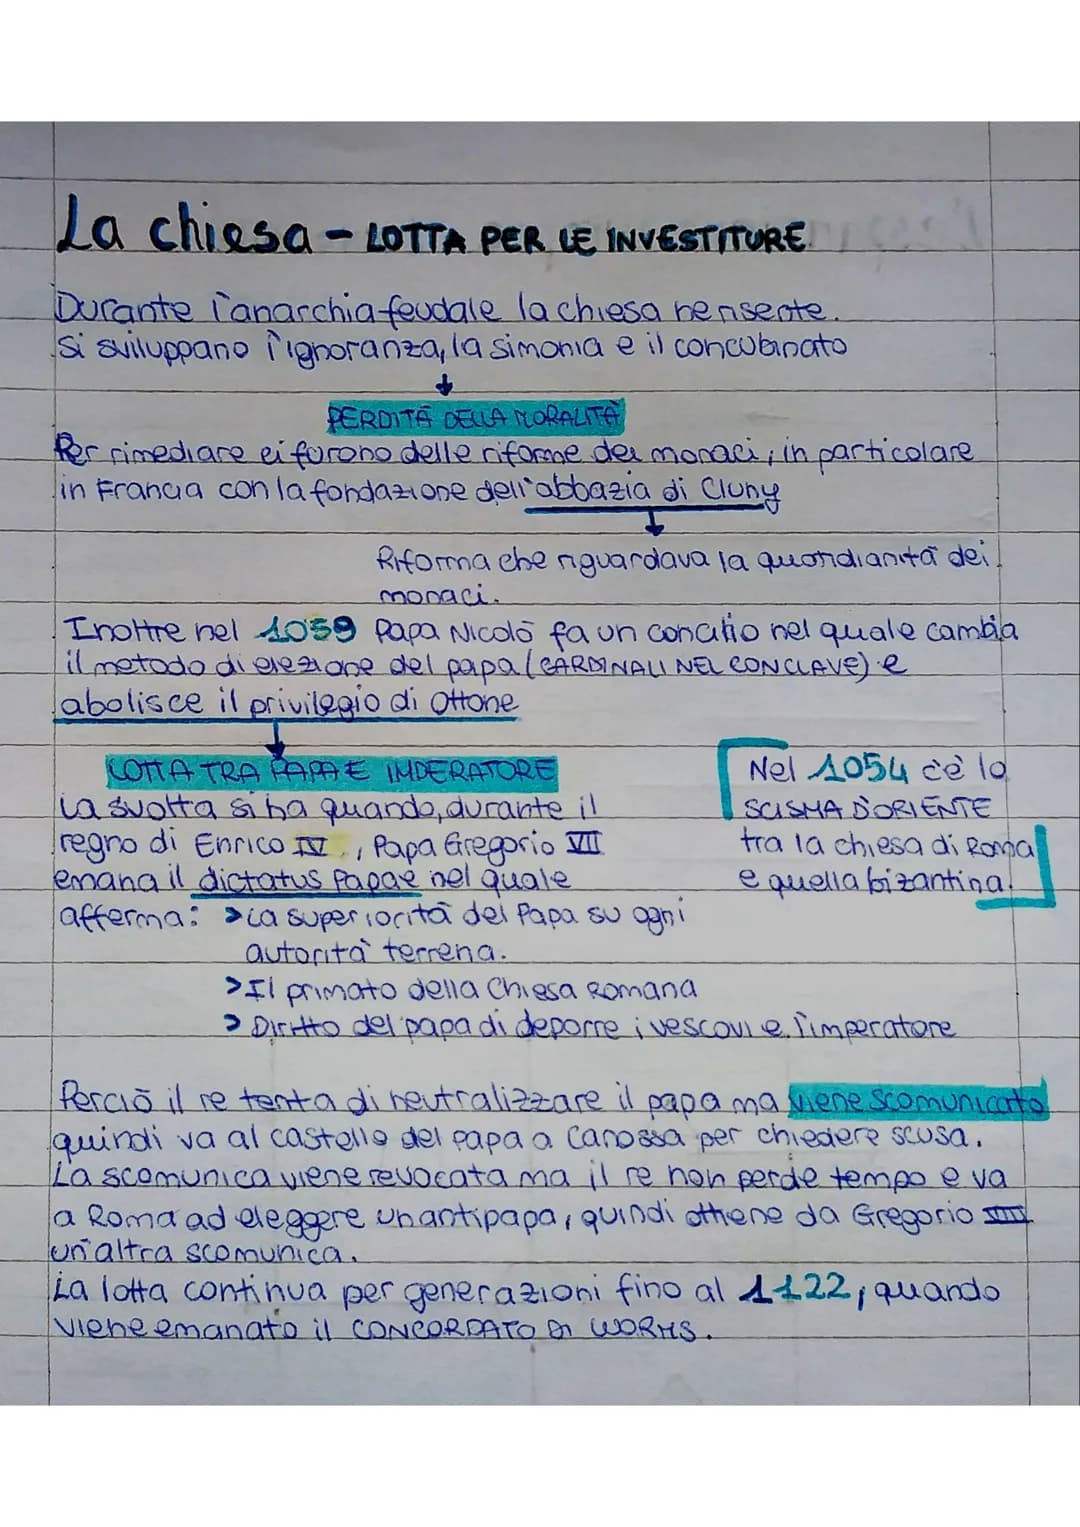 La chiesa - LOTTA PER LE INVESTITURE
Durante l'anarchia feudale la chiesa ne risente.
Si sviluppano l'ignoranza, la simonia e il concubinato
PERDITA DELLA MORALITÀ
Per rimediare ci furono delle riforme dei monaci, in particolare
in Francia con la fondazione dell'abbazia di Cluny
Riforma che riguardava la quotidianità dei
monaci.
Inoltre nel 1059 Papa Nicolò fa un concilio nel quale cambia
il metodo di elezione del papa (CARDINALI NEL CONCLAVE) e
abolisce il privilegio di Ottone
LOTTA TRA PAPA E IMPERATORE
La svolta si ha quando, durante il
regno di Enrico IV, Papa Gregorio VII
emana il dictatus Papae nel quale
afferma: >La superiorità del Papa su ogni
autorità terrena.
>Il primato della Chiesa Romana
> Diritto del papa di deporre i vescovi e l'imperatore
Nel 1054 c'è lo
SCISMA D'ORIENTE
tra la chiesa di Roma
e quella bizantina.
Perciò il re tenta di neutralizzare il papa ma viene scomunicato
quindi va al castello del Papa a Canossa per chiedere scusa.
La scomunica viene revocata ma il re non perde tempo e va
a Roma ad eleggere un antipapa, quindi ottiene da Gregorio
un'altra scomunica.
La lotta continua per generazioni fino al 1122, quando
viene emanato il CONCORDATO DI WORMS.